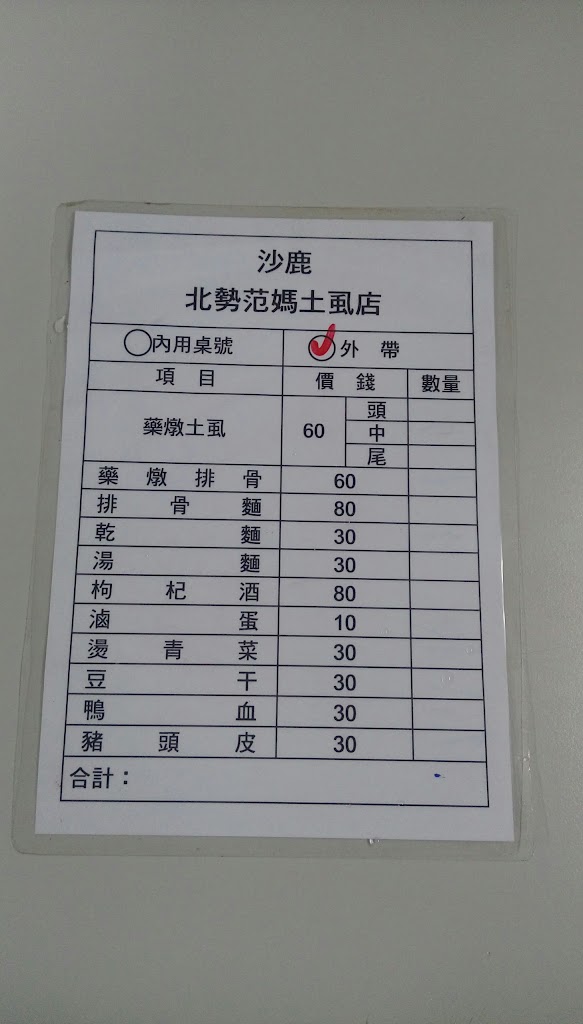 沙鹿
北勢范媽土虱店
內用桌號 外帶
項目 價錢 數量
藥燉土虱 60 頭
中
尾
藥燉排骨 60
排骨麵 80
乾麵 30
湯麵 30
枸杞酒 80
滷蛋 10
燙青菜 30
豆干 30
鴨血 30
豬頭皮 30
合計：